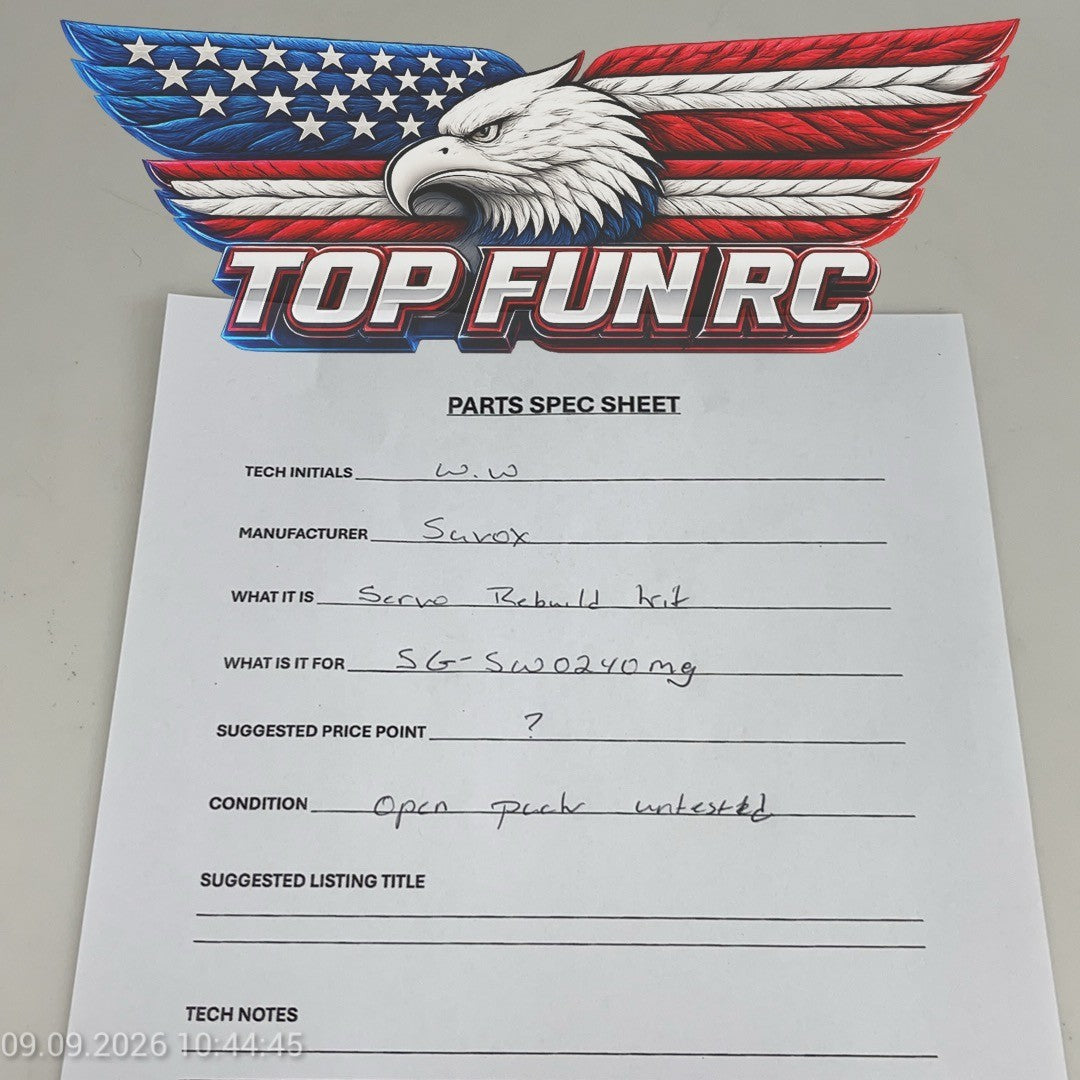 TOP FUN RC
PARTS SPEC SHEET
TECH INITIALS W.W
MANUFACTURER Savox
WHAT IT IS Servo Rebuild kit
WHAT IS IT FOR SG-SW0240mg
SUGGESTED PRICE POINT ?
CONDITION Open pack untested
SUGGESTED LISTING TITLE
TECH NOTES
09.09.2026 10:44:45